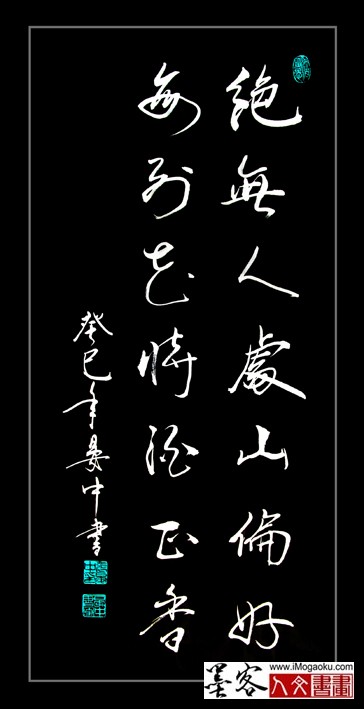 絕無人處山偏好
每到花時酒正香
癸巳年晏中書
墨客
www.iMogaoku.com
人文書畫